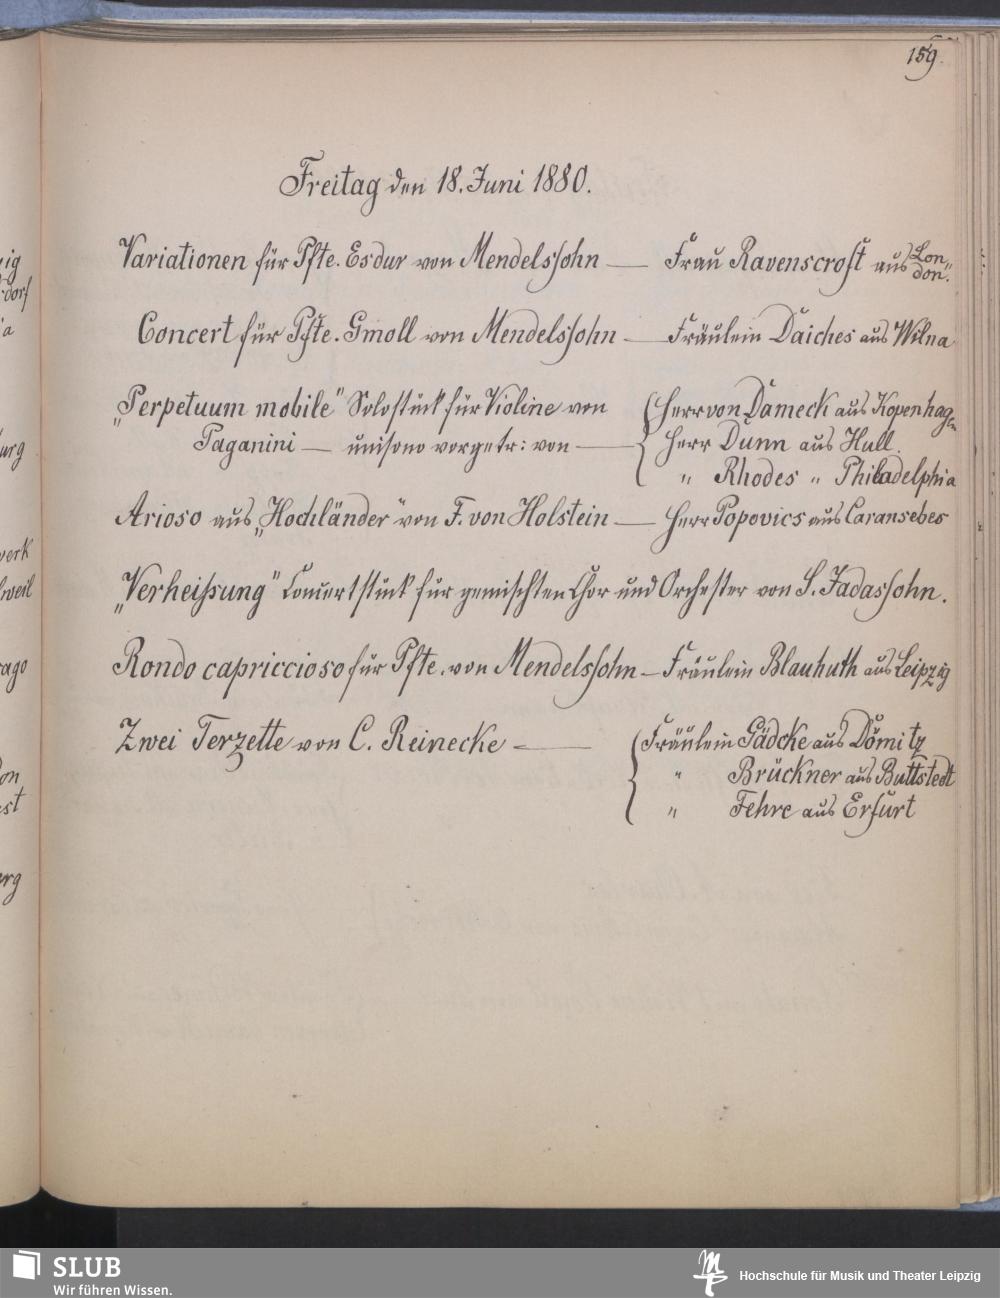 159.
Freitag den 18. Juni 1880.
Variationen für Pfte. Esdur von Mendelssohn — Frau Ravenscroft aus London.
Concert für Pfte. Gmoll von Mendelssohn — Fräulein Daiches aus Wilna
„Perpetuum mobile" Solostück für Violine von { Herr von Dameck aus Kopenhagen
Paganini — unisono vorgetr: von — Herr Dunn aus Hull.
" Rhodes " Philadelphia
Arioso aus „Hochländer" von F. von Holstein — Herr Popovics aus Caransebes
„Verheißung" Concertstück für gemischten Chor und Orchester von S. Jadassohn.
Rondo capriccioso für Pfte. von Mendelssohn — Fräulein Blauhuth aus Leipzig
Zwei Terzette von C. Reinecke — { Fräulein Gädcke aus Dömitz
" Brückner aus Buttstedt
" Fehre aus Erfurt
ig
dorf
a
urg
werk
weil
ago
on
st
erg
SLUB
Wir führen Wissen.
Hochschule für Musik und Theater Leipzig